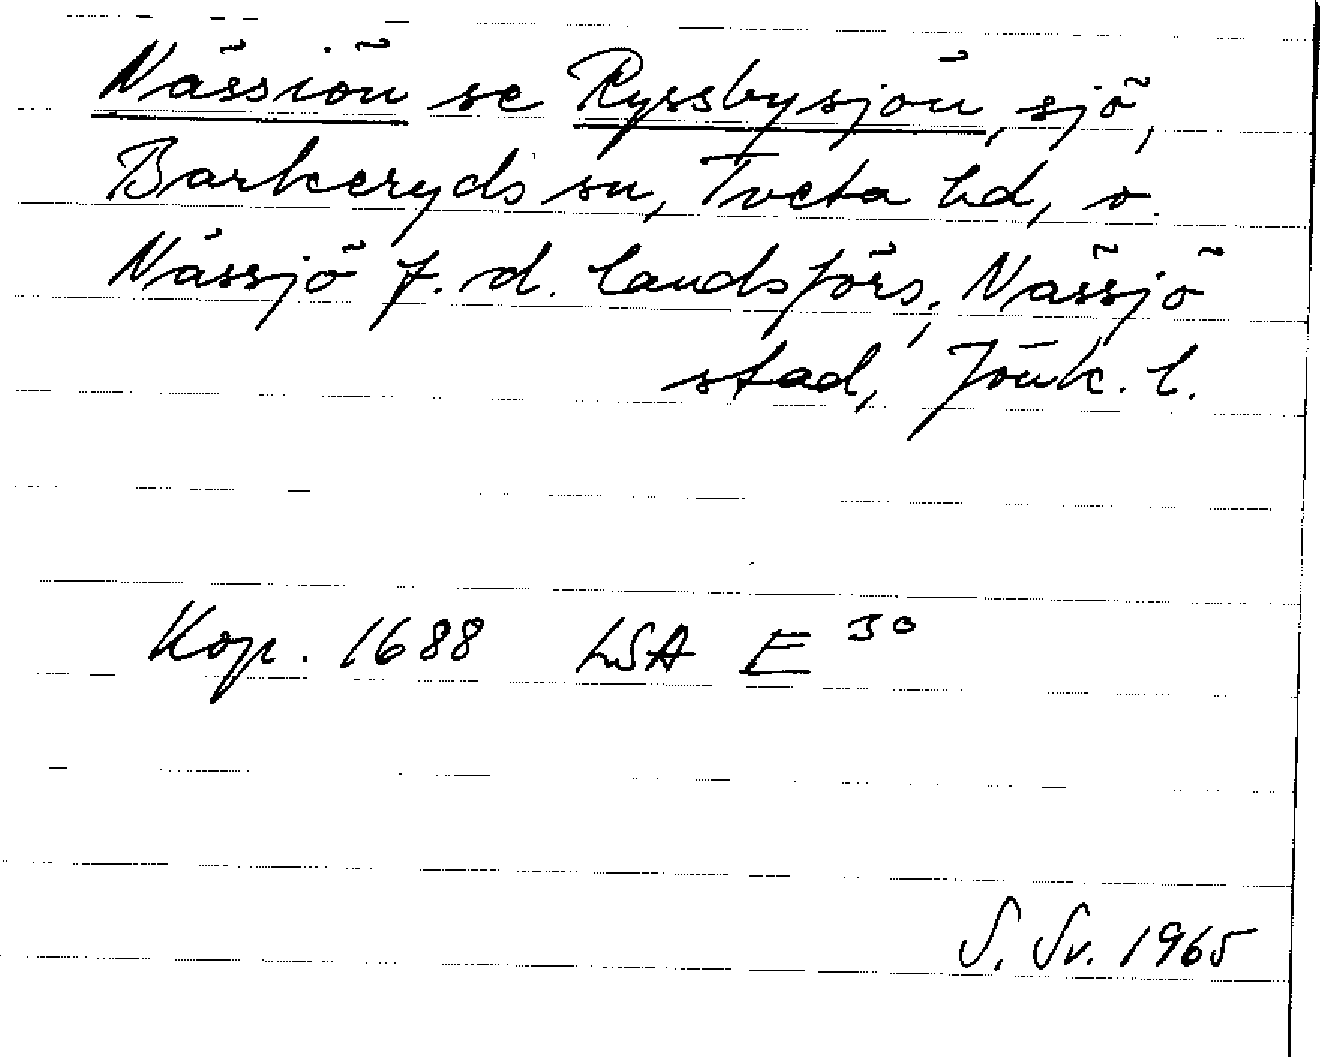 Nässiön se Ryssbysjön, sjö,
Barkeryds sn, Tveta hd, o.
Nässjö f. d. landsförs, Nässjö
stad, Jönk. l.
Kop. 1688 LSA E 30
S. Sv. 1965